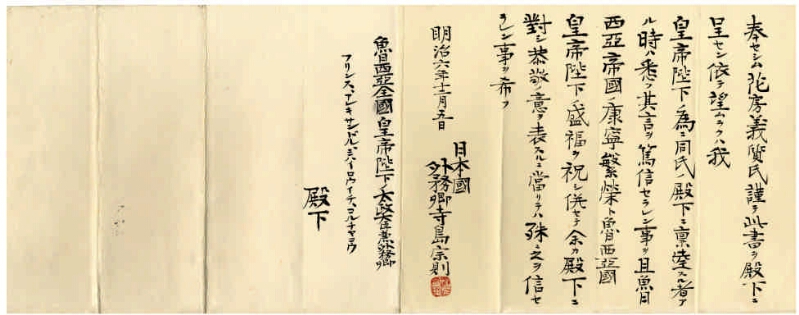 奉セシム花房義質氏謹テ此書ヲ殿下ニ
呈セン依テ望ムラクハ我
皇帝陛下ノ為ニ同氏ノ殿下ニ稟スル者ア
ル時ハ悉ク其言ヲ篤信セラレン事ヲ且魯
西亞帝國ノ康寧繁榮ト魯西亞國
皇帝陛下ノ盛福ヲ祝シ併セテ余カ殿下ニ
對シ恭敬ノ意ヲ表スルニ當リテハ殊ニ之ヲ信セ
ラレン事ヲ希フ
明治六年十二月五日
日本國
外務卿寺島宗則
魯西亞全國皇帝陛下ノ太政大臣兼外務卿
プリンス、アレキサンドル、ミハイロウイチ、ゴルチャコウ
殿下